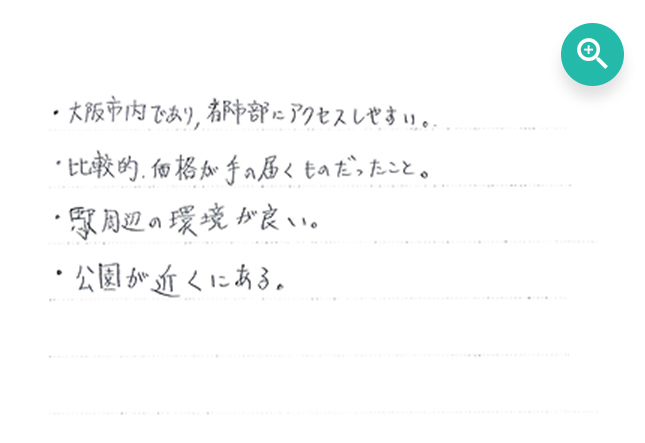 ・大阪市内であり,都市部にアクセスしやすい。
・比較的、価格が手の届くものだったこと。
・駅周辺の環境が良い。
・公園が近くにある。